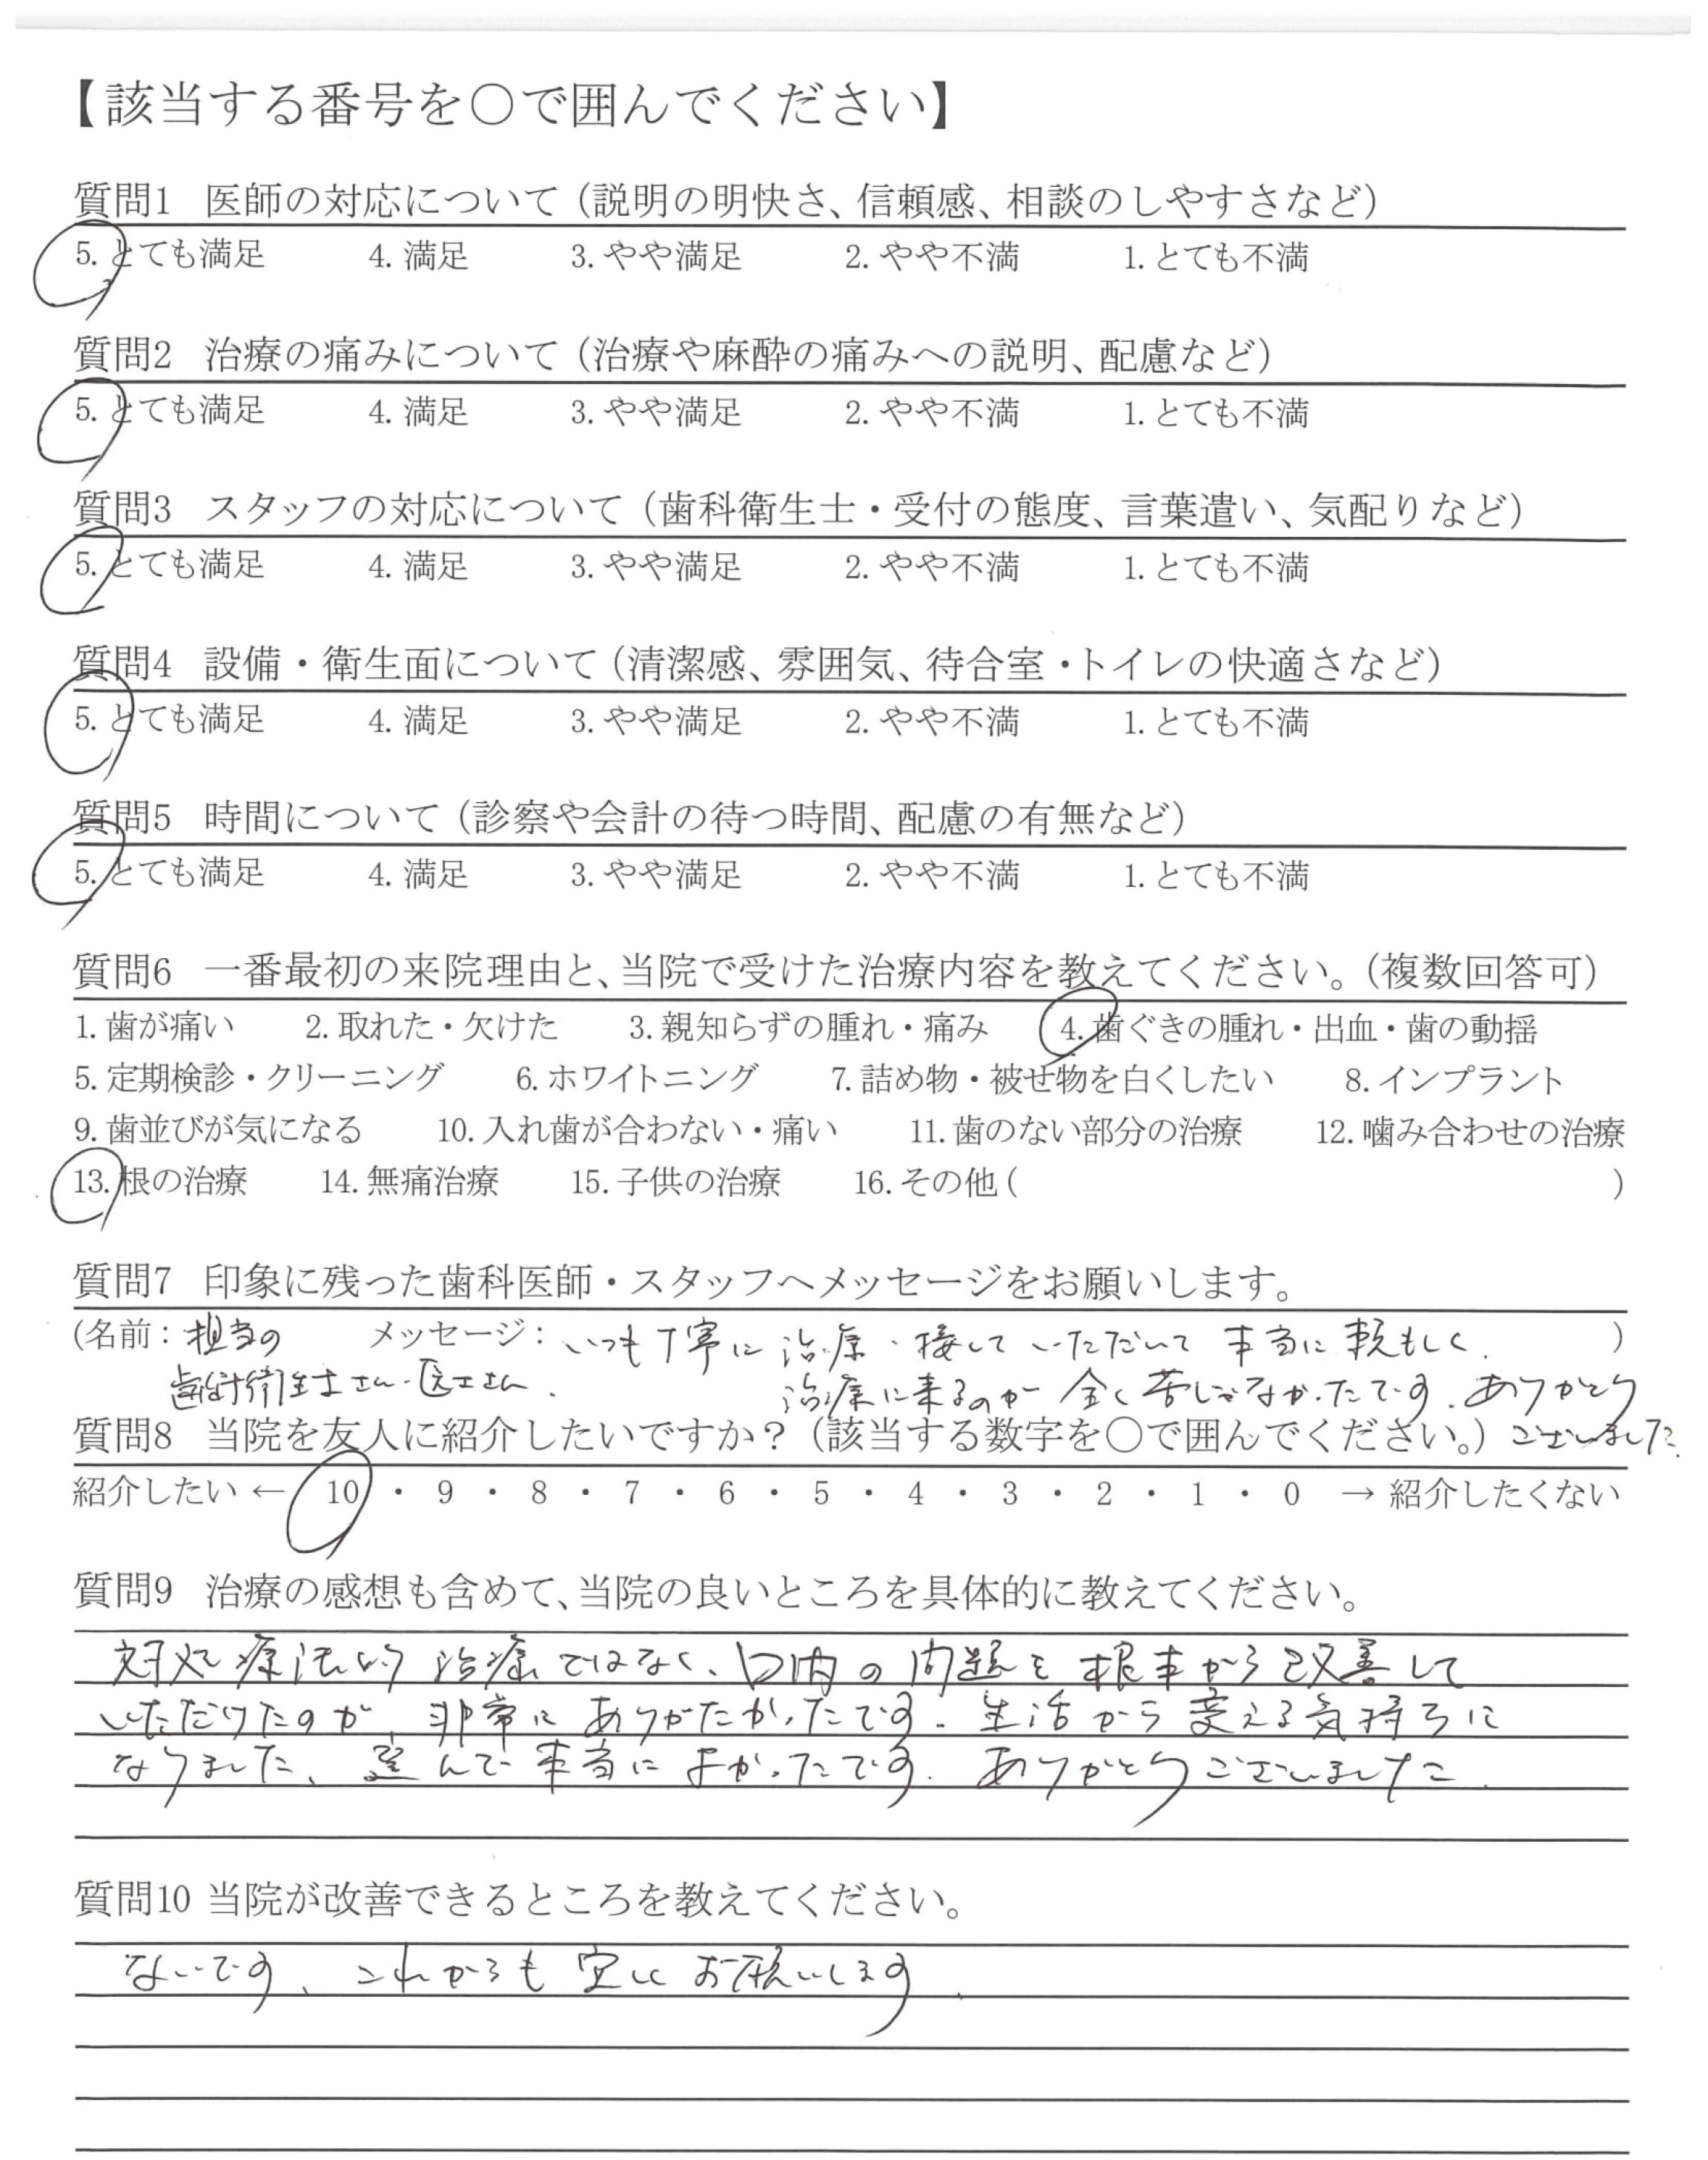 【該当する番号を○で囲んでください】
質問1 医師の対応について（説明の明快さ、信頼感、相談のしやすさなど）
5. とても満足 4. 満足 3. やや満足 2. やや不満 1. とても不満
質問2 治療の痛みについて（治療や麻酔の痛みへの説明、配慮など）
5. とても満足 4. 満足 3. やや満足 2. やや不満 1. とても不満
質問3 スタッフの対応について（歯科衛生士・受付の態度、言葉遣い、気配りなど）
5. とても満足 4. 満足 3. やや満足 2. やや不満 1. とても不満
質問4 設備・衛生面について（清潔感、雰囲気、待合室・トイレの快適さなど）
5. とても満足 4. 満足 3. やや満足 2. やや不満 1. とても不満
質問5 時間について（診察や会計の待つ時間、配慮の有無など）
5. とても満足 4. 満足 3. やや満足 2. やや不満 1. とても不満
質問6 一番最初の来院理由と、当院で受けた治療内容を教えてください。（複数回答可）
1. 歯が痛い 2. 取れた・欠けた 3. 親知らずの腫れ・痛み 4. 歯ぐきの腫れ・出血・歯の動揺
5. 定期検診・クリーニング 6. ホワイトニング 7. 詰め物・被せ物を白くしたい 8. インプラント
9. 歯並びが気になる 10. 入れ歯が合わない・痛い 11. 歯のない部分の治療 12. 噛み合わせの治療
13. 根の治療 14. 無痛治療 15. 子供の治療 16. その他（ ）
質問7 印象に残った歯科医師・スタッフへメッセージをお願いします。
（名前：担当の メッセージ：いつも丁寧に治療・接していただいて本当に頼もしく、）
歯科衛生士さん・医士さん. 治療に来るのが全く苦じゃなかったです。ありがとう
質問8 当院を友人に紹介したいですか？（該当する数字を○で囲んでください。）ございました。
紹介したい ← 10 ・ 9 ・ 8 ・ 7 ・ 6 ・ 5 ・ 4 ・ 3 ・ 2 ・ 1 ・ 0 → 紹介したくない
質問9 治療の感想も含めて、当院の良いところを具体的に教えてください。
対処療法的治療ではなく、口内の問題を根本から改善して
いただけたのが、非常にありがたかったです。生活から変える気持ちに
なりました、選んで本当によかったです。ありがとうございました。
質問10 当院が改善できるところを教えてください。
ないです、これからも宜しくお願いします。